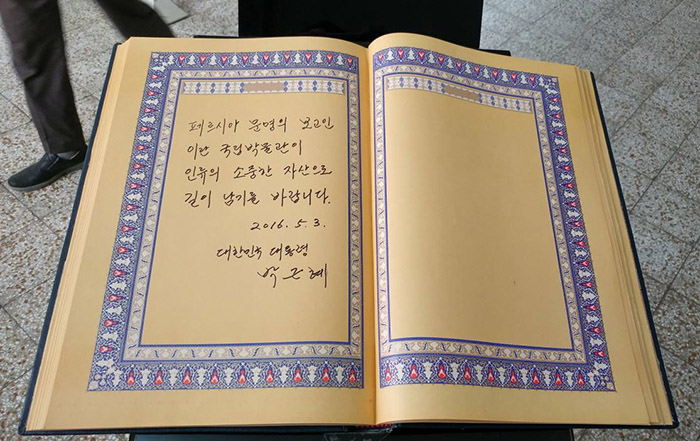 페르시아 문명의 보고인
이란 국립박물관이
인류의 소중한 자산으로
길이 남기를 바랍니다.
2016. 5. 3.
대한민국 대통령
박근혜